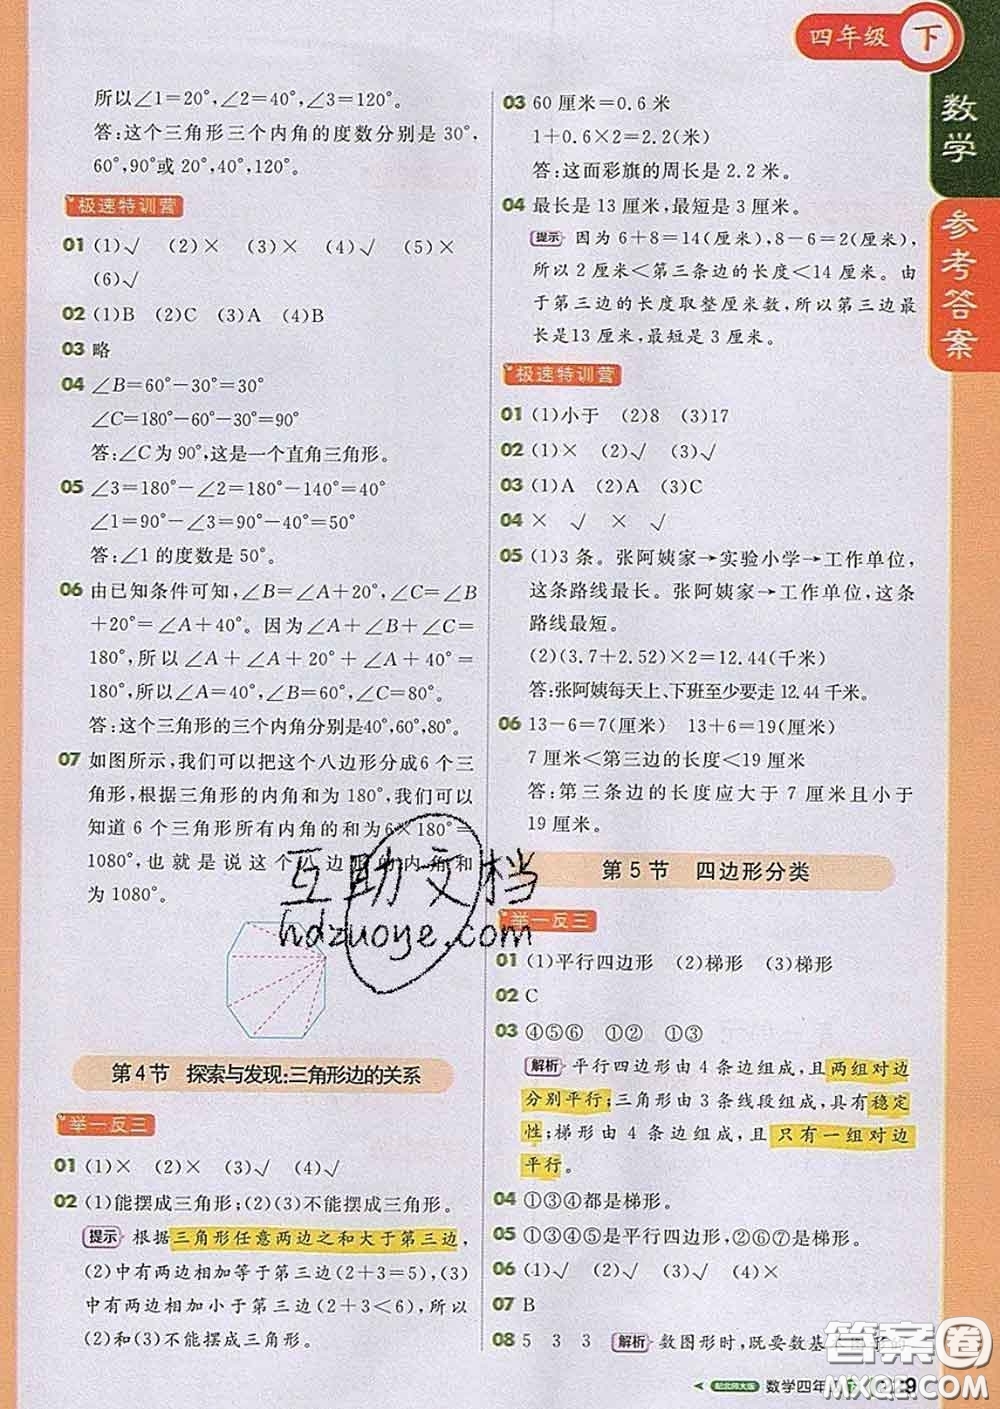 四年级 下
数学
参考答案
所以∠1=20°,∠2=40°,∠3=120°。
答:这个三角形三个内角的度数分别是 30°,
60°,90°或 20°,40°,120°。
极速特训营
01 (1)√ (2)× (3)× (4)√ (5)×
(6)√
02 (1)B (2)C (3)A (4)B
03 略
04 ∠B=60°-30°=30°
∠C=180°-60°-30°=90°
答:∠C 为 90°,这是一个直角三角形。
05 ∠3=180°-∠2=180°-140°=40°
∠1=90°-∠3=90°-40°=50°
答:∠1 的度数是 50°。
06 由已知条件可知,∠B=∠A+20°,∠C=∠B
+20°=∠A+40°。因为∠A+∠B+∠C=
180°,所以∠A+∠A+20°+∠A+40°=
180°,所以∠A=40°,∠B=60°,∠C=80°。
答:这个三角形的三个内角分别是40°,60°,80°。
07 如图所示,我们可以把这个八边形分成6 个三
角形,根据三角形的内角和为 180°,我们可以
知道 6 个三角形所有内角的和为6×180°=
1080°,也就是说这个八边形的内角和
为 1080°。
互助文档
hdzuoye.com
第 4 节 探索与发现:三角形边的关系
举一反三
01 (1)× (2)√ (3)√ (4)√
02 (1)能摆成三角形;(2)(3)不能摆成三角形。
提示 根据三角形任意两边之和大于第三边,
(2)中有两边相加等于第三边(2+3=5),(3)
中有两边相加小于第三边(2+3<6),所以
(2)和(3)不能摆成三角形。
03 60 厘米=0.6 米
1+0.6×2=2.2(米)
答:这面彩旗的周长是 2.2 米。
04 最长是 13 厘米,最短是 3 厘米。
提示 因为 6+8=14(厘米),8-6=2(厘米),
所以 2 厘米<第三条边的长度<14 厘米。由
于第三边的长度取整厘米数,所以第三边最
长是13 厘米,最短是 3 厘米。
极速特训营
01 (1)小于 (2)8 (3)17
02 (1)× (2)√ (3)√
03 (1)A (2)A (3)C
04 × √ × √
05 (1)3 条。张阿姨家→实验小学→工作单位,
这条路线最长。张阿姨家→工作单位,这条
路线最短。
(2)(3.7+2.52)×2=12.44(千米)
答:张阿姨每天上、下班至少要走 12.44 千米。
06 13-6=7(厘米) 13+6=19(厘米)
7 厘米<第三边的长度<19 厘米
答:第三条边的长度应大于 7 厘米且小于
19 厘米。
第 5 节 四边形分类
举一反三
01 (1)平行四边形 (2)梯形 (3)梯形
02 C
03 ④⑤⑥ ①② ①③
解析 平行四边形由 4 条边组成,且两组对边
分别平行;三角形由 3 条线段组成,具有稳定
性;梯形由 4 条边组成,且只有一组对边
平行。
04 ①③④都是梯形。
05 ①③④⑤是平行四边形,②⑥⑦是梯形。
06 (1)√ (2)√ (3)√ (4)×
07 B
08 5 3 3 解析 数图形时,既要数基
配北师大版 数学四年
答案圈
9